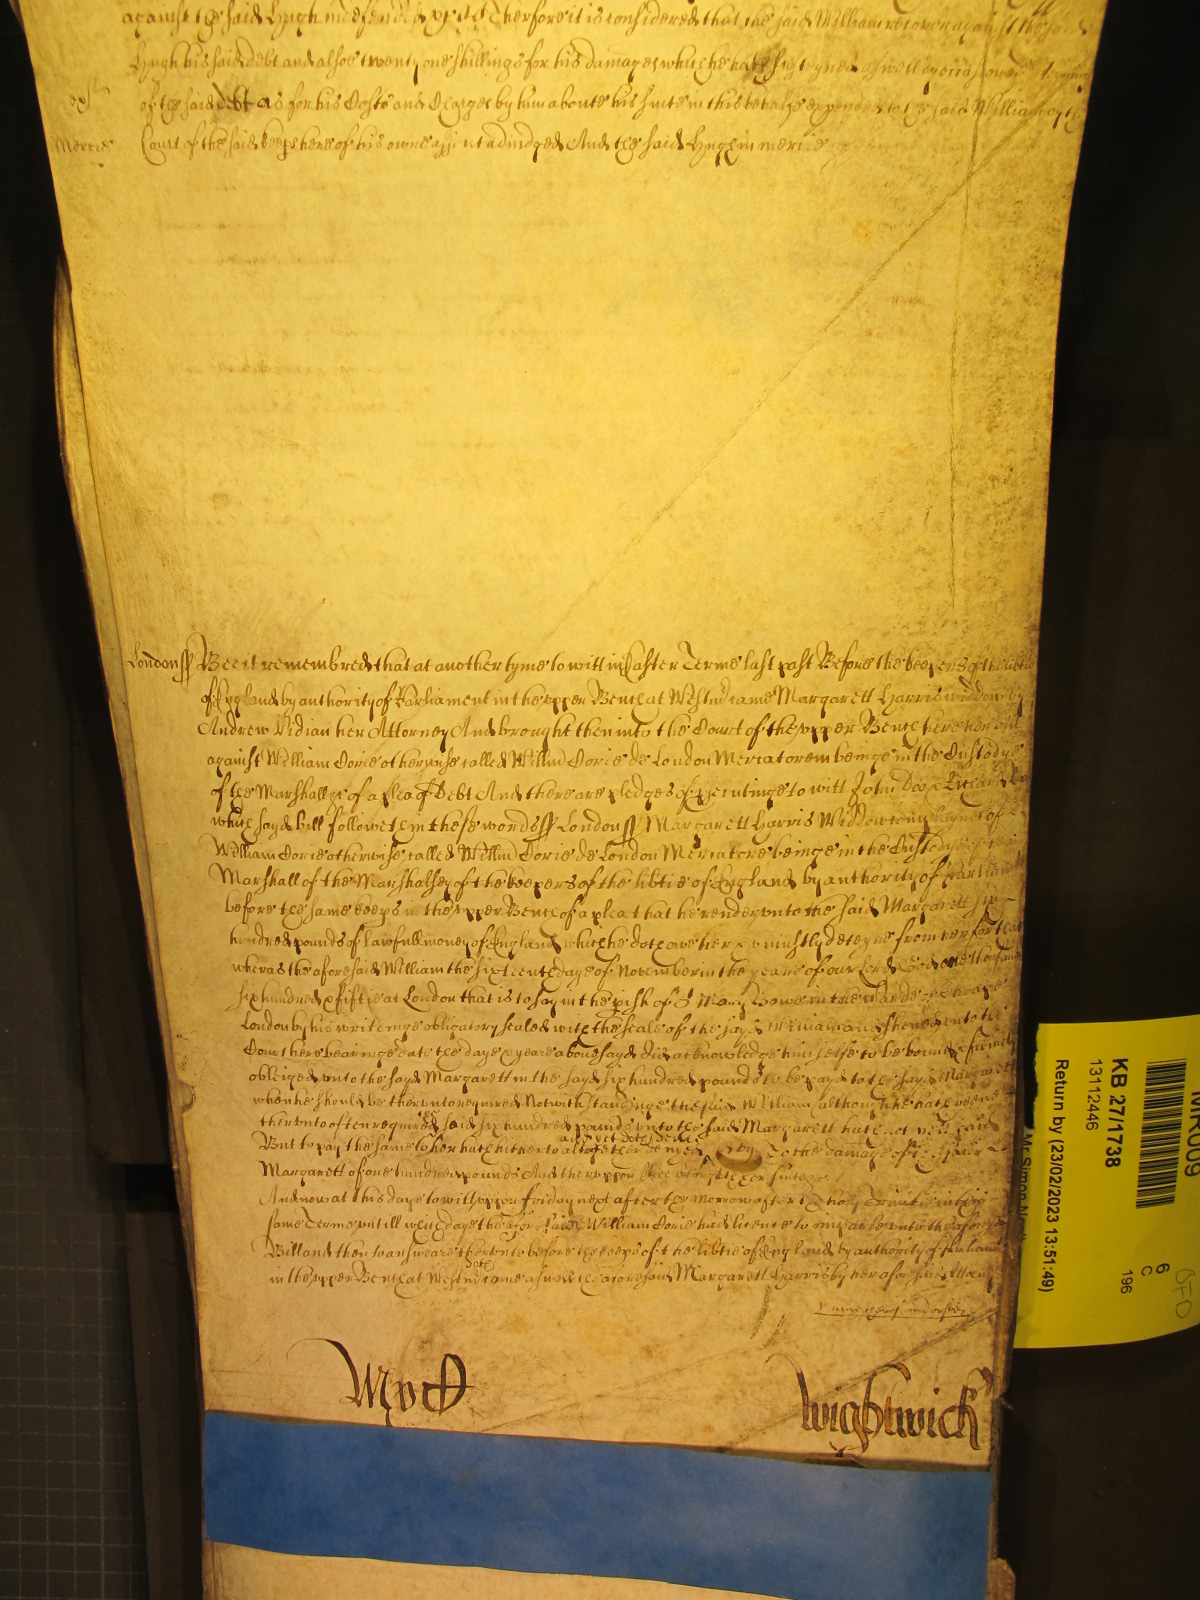 against the said Hugh in defence &c Therefore it is considered that the said William recover against the said
Hugh his said debt and alsoe twenty one shillings for his damages which he hath susteyned aswell
of the said debt as for his Costs and Charges by him aboute his suite in this behalfe expended to the said William by the
Mercie Court of the said keeps here of his owne assent adiudged And the said Hugh in mercie
London ss Bee it remembred that at another tyme to witt in Easter Terme last past Before the keepers of the libtie
of England by authority of Parliament in the upper Bench at Westm came Margarett Harris widdow by
Andrew Vidian her Attorney And brought then into the Court of the upper Bench here her bill
against William Corie otherwise called Willm Corie de London Mercatorem beinge in the Custodye
of the Marshall &c of a plea of Debt And there are pledges of psecutinge to witt John Doo & Richard
which sayd bill followeth in these words ss London ss Margarett Harris Widdow complaynes of
William Corie otherwise called Willm Corie de London Mercatore beinge in the Custodye of the
Marshall of the Marshalsey of the keepers of the libtie of England by authority of Parliamt
before the same keeps in the upper Bench of a plea that he render unto the said Margarett six
hundred pounds of lawfull money of England which he doth owe her & uniustly deteyne from her for that
wheras the aforesaid William the sixteenth daye of November in the yeare of our Lord God one thousand
six hundred & fiftie at London that is to say in the pish of S Mary Bowe in the warde of Cheape
London by his writinge obligatory sealed with the seale of the sayd William and shewed unto the
Court here bearinge date the daye & yeare above sayd did acknowledge himselfe to be bound & firmely
obliged unto the sayd Margarett in the sayd six hundred pounds to be payd to the sayd Margarett
when he should be therunto required Notwithstandinge the said William although he hath beene
therunto often required the said six hundred pounds unto the said Margarett hath not yett paid
But to pay the same to her hath hitherto altogether denied and yet doth denie to the damage of the said
Margarett of one hundred pounds And therupon shee bringeth her suite &c
And now at this daye to witt uppon Friday next after the Morrow after the holy Trinitie in this
same Terme untill which daye the aforesaid William Corie had licence to imparle unto the aforesaid
Bill and then to answeare therunto before the keeps of the libtie of England by authority of Parliamt
in the upper Bench at Westm doth come aswell the aforesaid Margarett Harris by her aforesaid Attorny
Wightwick
KB 27/1738
13112446
Return by (23/02/2023 13:51:49)
6
C
196